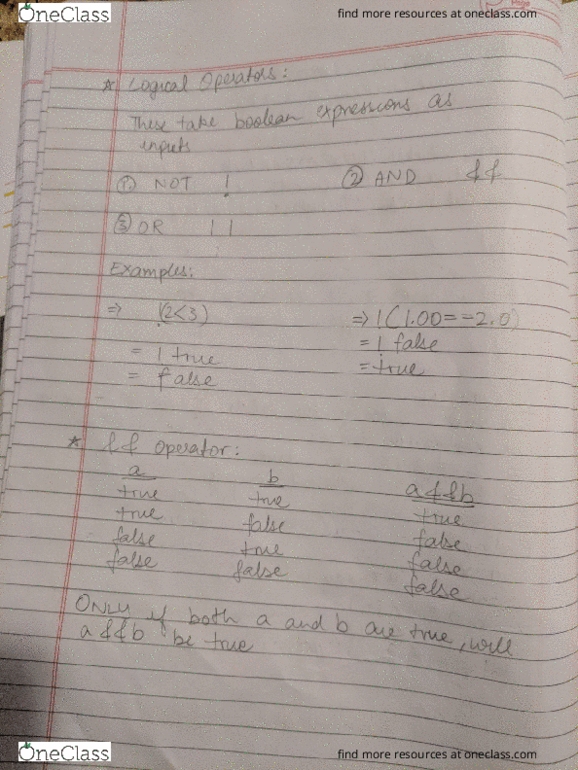 OneClass
find more resources at oneclass.com
* Logical Operators:
These take boolean expressions as
inputs
① NOT !
② AND &&
③ OR ||
Examples:
⇒ !(2<3)
= ! true
= false
⇒ !(1.00==-2.0)
= ! false
= true
* && operator:
a b a&&b
true true true
true false false
false true false
false false false
ONLY if both a and b are true, will
a&&b be true
OneClass
find more resources at oneclass.com